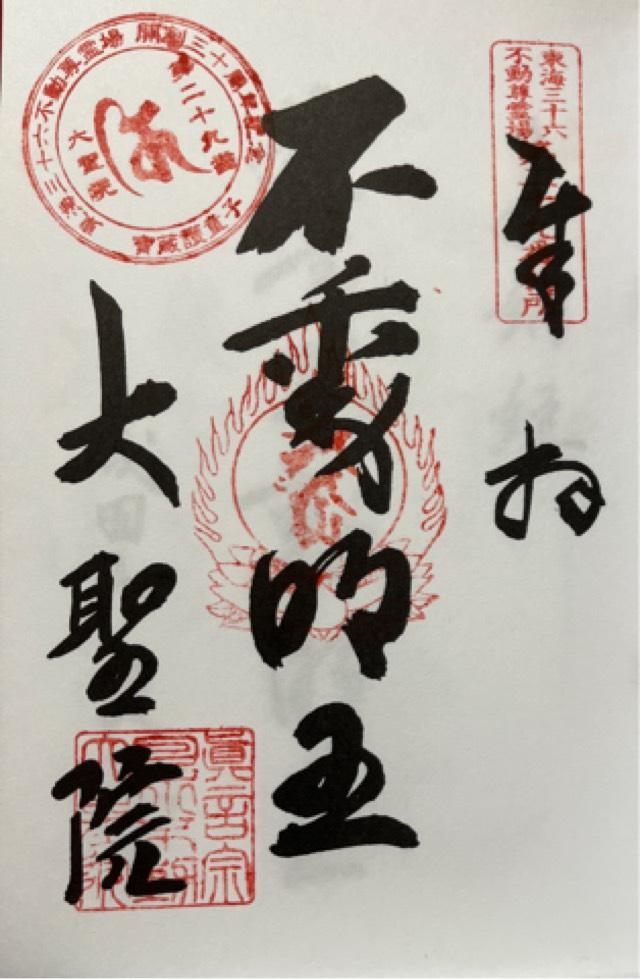 奉拝
東海三十六
不動尊霊場
不動明王
大聖院
東海三十六不動尊霊場 開創三十周年記念
第二十九番
大聖院
童子
眞言宗